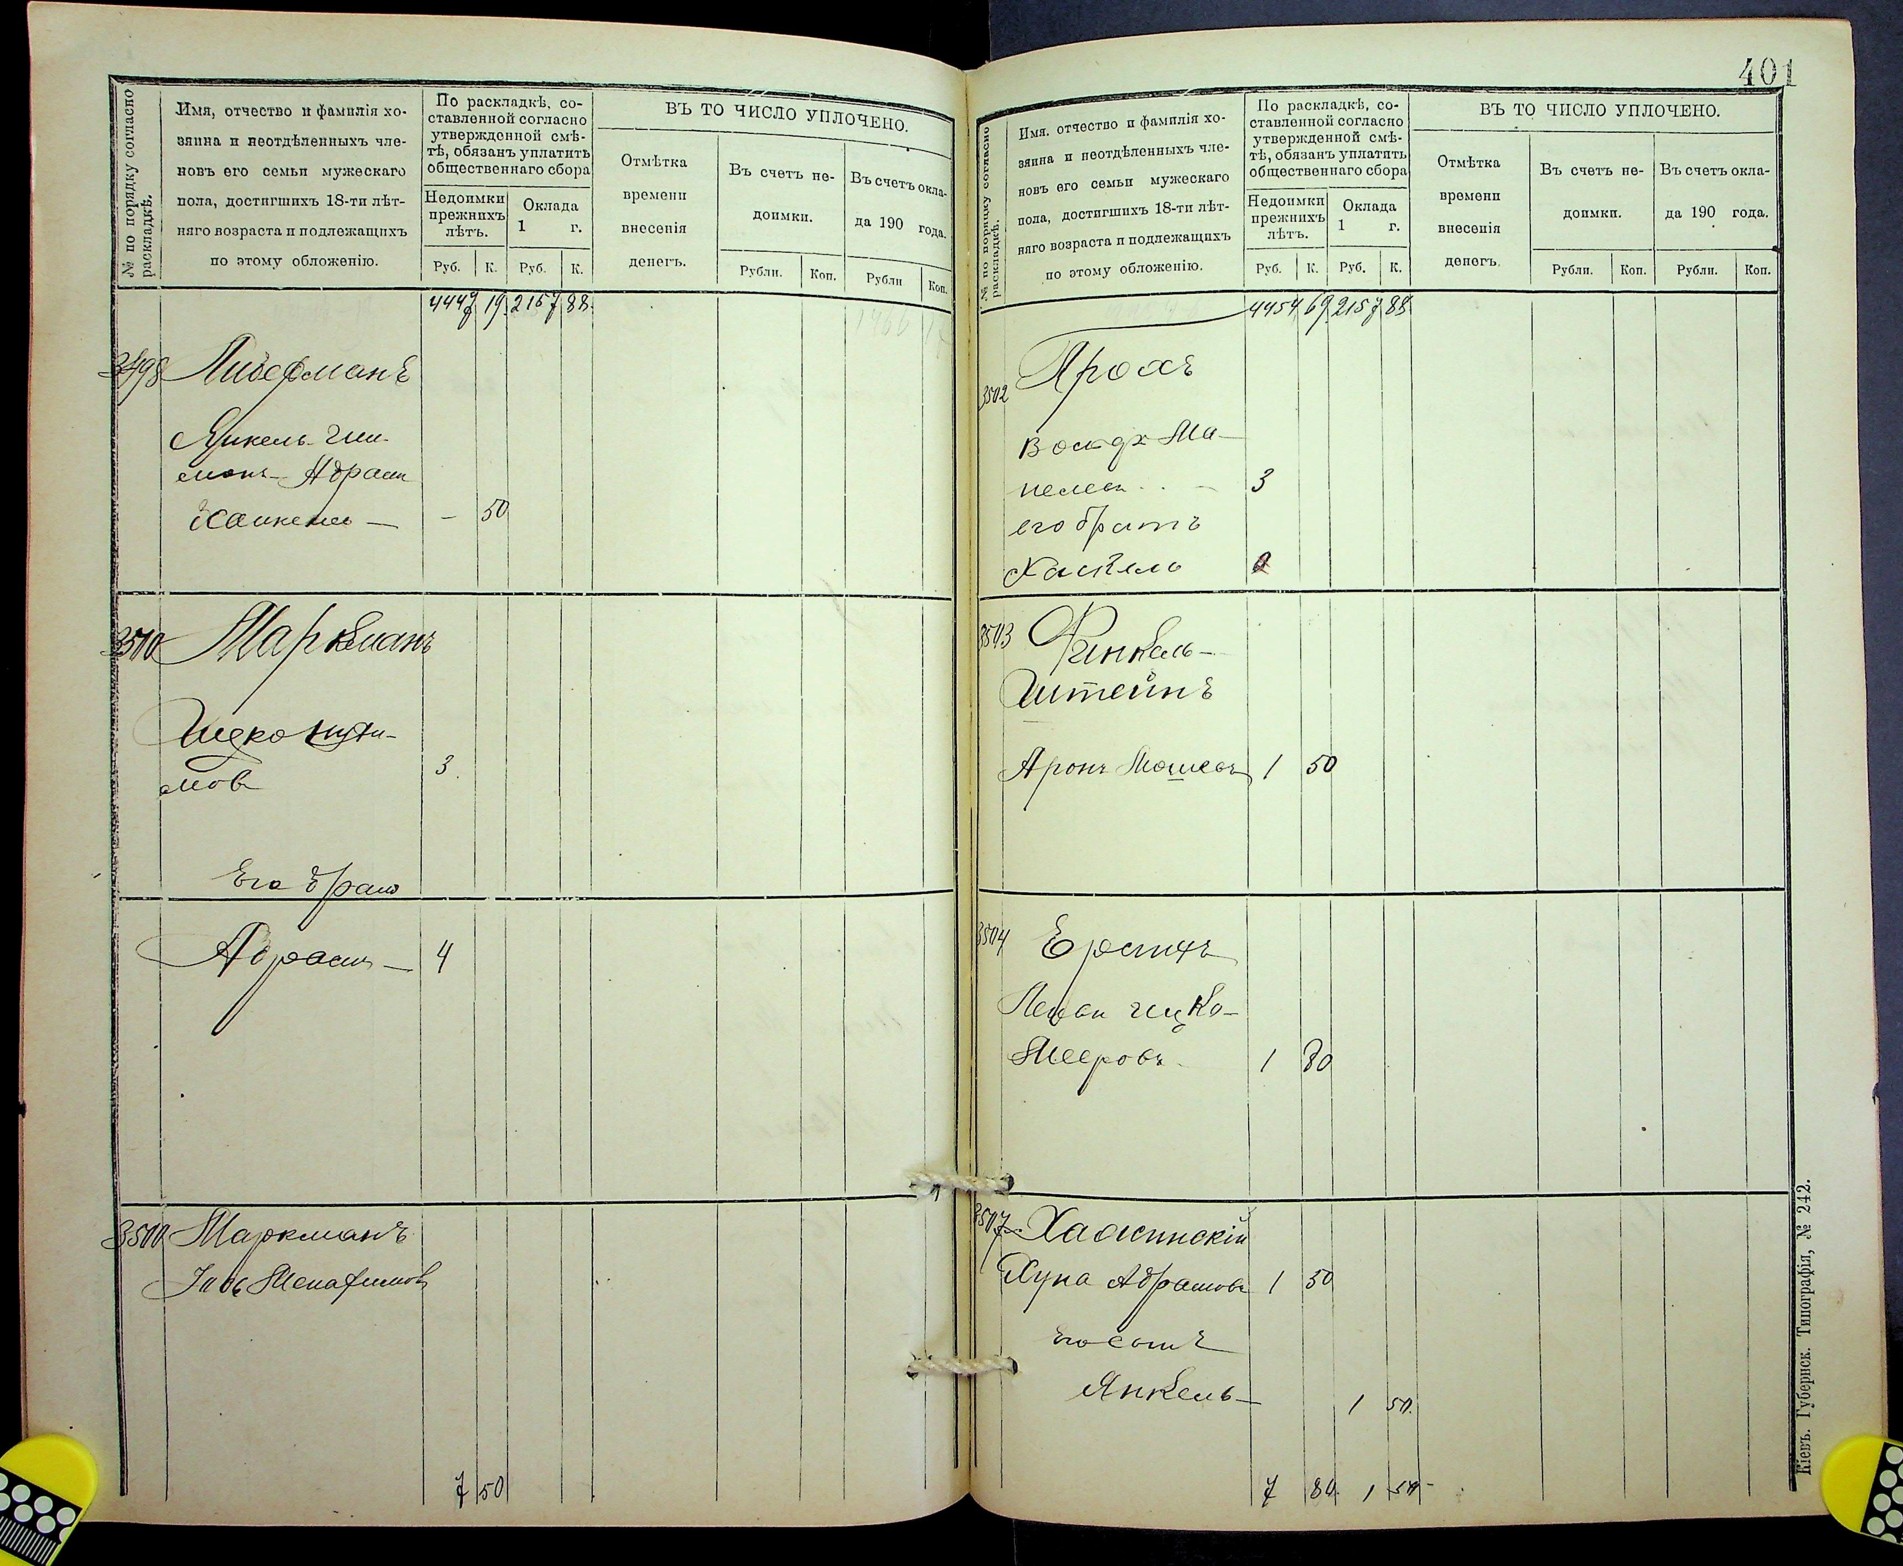 401
№ по порядку согласно раскладкѣ.
Имя, отчество и фамилія хо-
зяина и неотдѣленныхъ чле-
новъ его семьи мужескаго
пола, достигшихъ 18-ти лѣт-
няго возраста и подлежащихъ
по этому обложенію.
По раскладкѣ, со-
ставленной согласно
утвержденной смѣ-
тѣ, обязанъ уплатить
общественнаго сбора
Недоимки прежнихъ лѣтъ.
Оклада 1 г.
Руб. К. Руб. К.
ВЪ ТО ЧИСЛО УПЛОЧЕНО.
Отмѣтка
времени
внесенія
денегъ.
Въ счетъ не-
доимки.
Въ счетъ окла-
да 190 года.
Рубли. Коп. Рубли Коп.
4447 19 2157 88
3498 Либерманъ
Янкель
Абрам
Хаикель — — 50
3500 Маркманъ
Ицко
мов 3
Его брат
Абрам — 4
3500 Маркманъ
7 50
№ по порядку согласно раскладкѣ.
Имя, отчество и фамилія хо-
зяина и неотдѣленныхъ чле-
новъ его семьи мужескаго
пола, достигшихъ 18-ти лѣт-
няго возраста и подлежащихъ
по этому обложенію.
По раскладкѣ, со-
ставленной согласно
утвержденной смѣ-
тѣ, обязанъ уплатить
общественнаго сбора
Недоимки прежнихъ лѣтъ.
Оклада 1 г.
Руб. К. Руб. К.
ВЪ ТО ЧИСЛО УПЛОЧЕНО.
Отмѣтка
времени
внесенія
денегъ.
Въ счетъ не-
доимки.
Въ счетъ окла-
да 190 года.
Рубли. Коп. Рубли. Коп.
4454 69 2157 88
3502
3
его братъ
Хаикель
3503 Финкель-
Штейнъ
Аронъ Мошков 1 50
3504
Лейба Ицко-
Мееровъ 1 80
3507
Абрамовъ 1 50
его сынъ
Янкель — 1 50
7 80 1 50
Кіевъ. Губернск. Типографія, № 242.